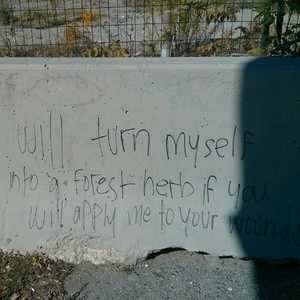 will turn myself
into a forest herb if you
will apply me to your wounds